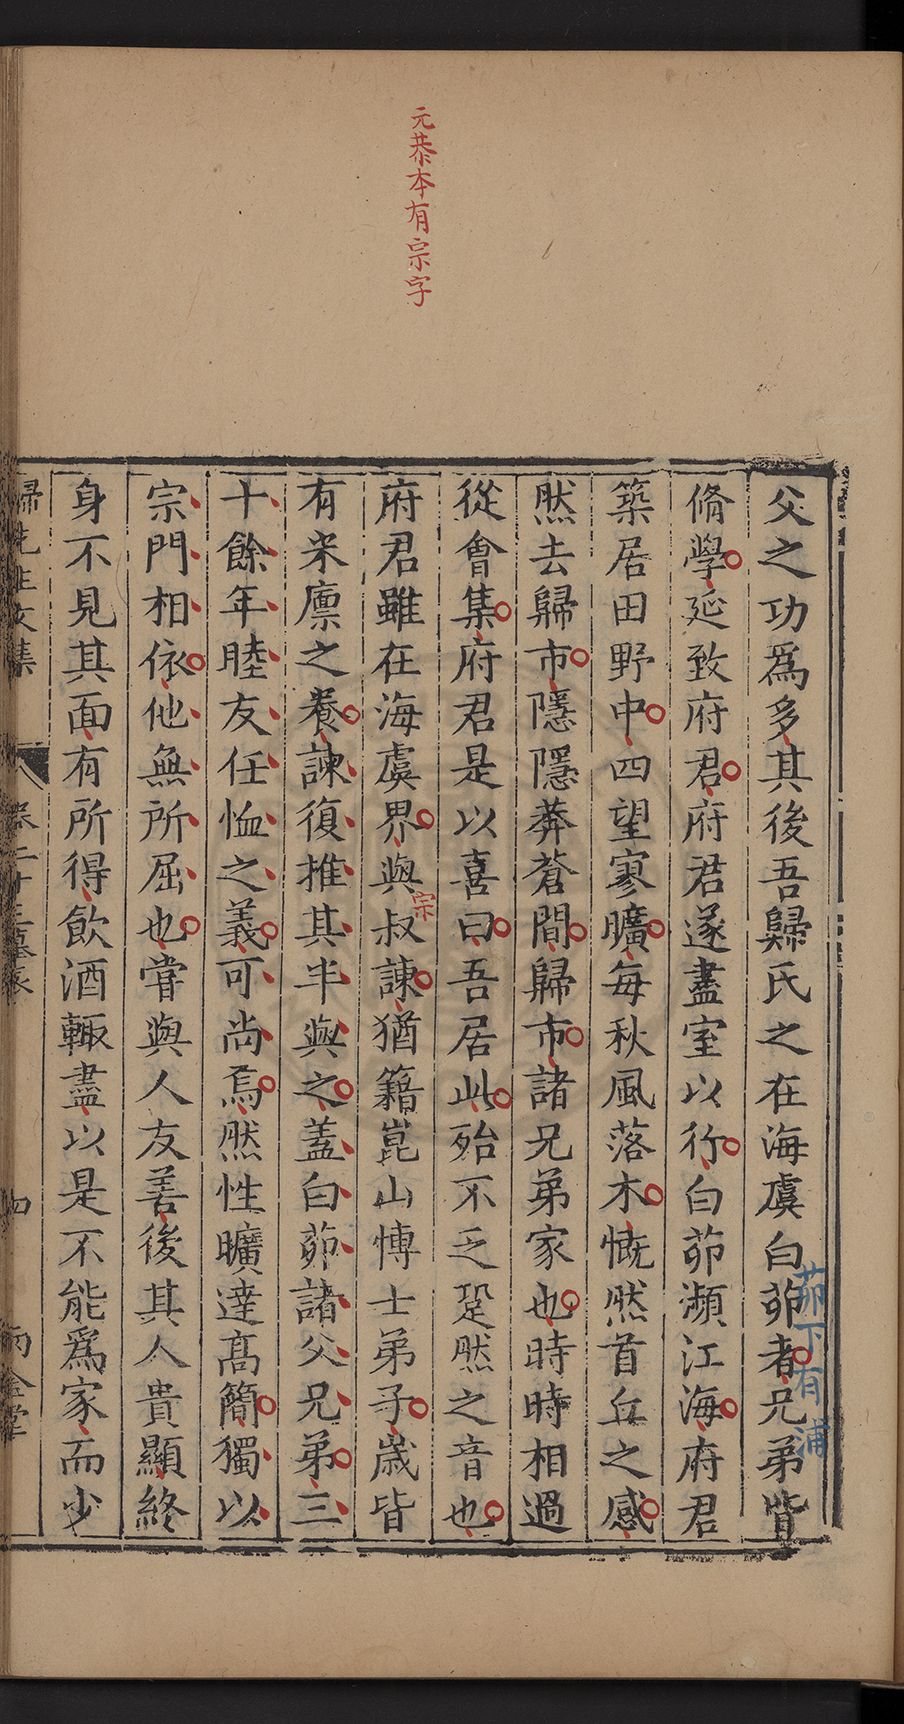 元恭本有宗字
父之功爲多其後吾歸氏之在海虞白茆者兄弟皆
脩學延致府君府君遂盡室以行白茆瀕江海府君
築居田野中四望寥曠每秋風落木慨然首丘之感
然去歸市隱隱莽蒼間歸市諸兄弟家也時時相過
從會集府君是以喜曰吾居此殆不乏跫然之音也
府君雖在海虞界與叔諫猶籍崑山博士弟子歲皆
宗
有米廩之養諫復推其半與之蓋白茆諸父兄弟三
十餘年睦友任恤之義可尚焉然性曠達髙簡獨以
宗門相依他無所屈也嘗與人友善後其人貴顯終
身不見其面有所得飲酒輒盡以是不能爲家而少
茆下有浦
歸先生文集
卷二十 墓表
四